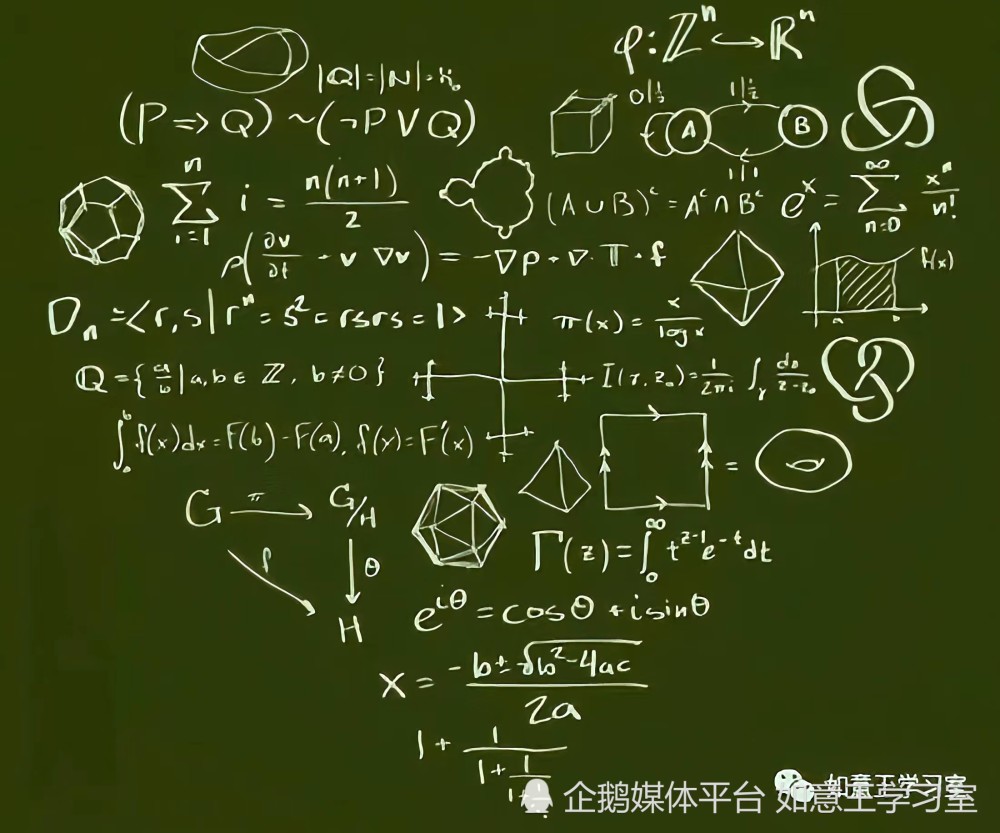 φ: ℤⁿ ↔ ℝⁿ
|Q|=|N|=ℵ₀
(P ⇒ Q) ~ (¬P ∨ Q)
0|½ A 1|½ B 1|1
\sum_{i=1}^{n} i = \frac{n(n+1)}{2}
(A ∪ B)ᶜ = Aᶜ ∩ Bᶜ
eˣ = \sum_{n=0}^{∞} \frac{xⁿ}{n!}
ρ(\frac{∂v}{∂t} + v ∇v) = -∇p + ∇·T + f
f(x) a b
Dₙ = <r, s | rⁿ = s² = rsrs = 1>
π(x) = \frac{x}{log x}
Q = {\frac{a}{b} | a, b ∈ ℤ, b ≠ 0}
I(γ, z₀) = \frac{1}{2πi} ∫_γ \frac{dz}{z-z₀}
∫_a^b f(x)dx = F(b) - F(a), f(x) = F'(x)
=
G π G/H
f θ
H
Γ(z) = ∫_0^∞ t^{z-1} e^{-t} dt
e^{iθ} = cosθ + i sinθ
x = \frac{-b ± \sqrt{b²-4ac}}{2a}
1 + \frac{1}{1 + \frac{1}{1 + \frac{1}{}}}
如意王学习室
企鹅媒体平台 如意王学习室